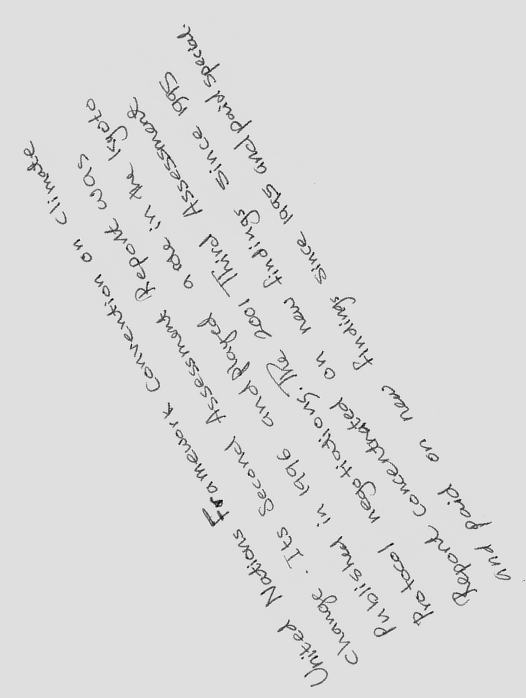 United Nations Framework Convention on climate
change. Its Second Assessment Report was
Published in 1996 and played a role in the kyoto
Protocol negotiations. The 2001 Third Assessment
Report concentrated on new findings since 1995
and paid on new findings since 1995 and paid special.